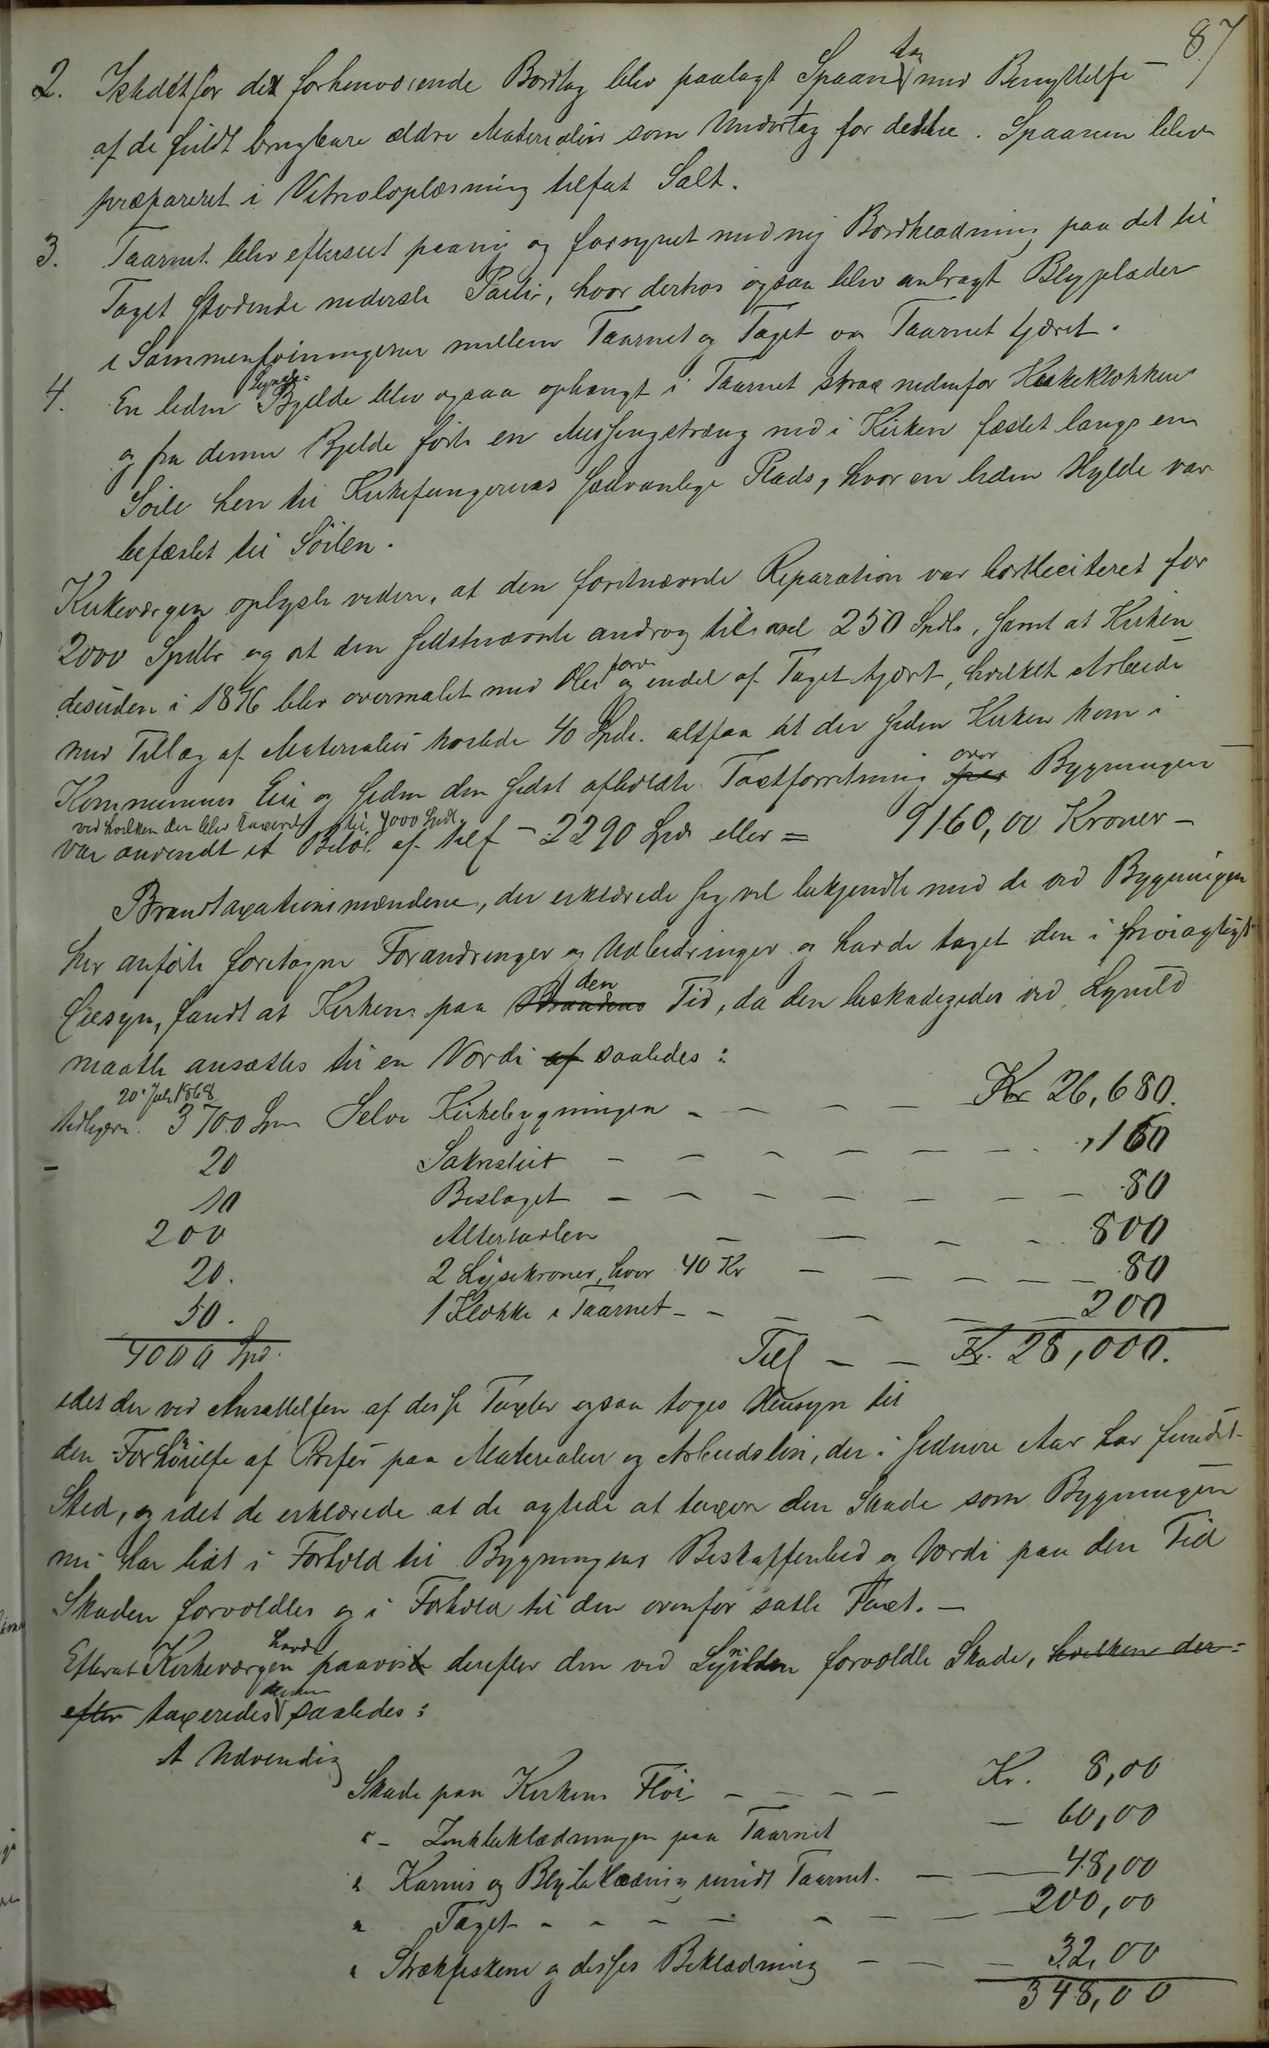 87
2. Istedetfor det forhenværende Bordtag blev paalagt Spaantag med Benyttelse
af de fuldt brugbare ældre Materialier som Undertag for dette. Spaanen blev
præpareret i Vitrioloplæsning tilsat Salt.
3. Taarnet blev efterseet paany og forsynet med ny Bordklædning paa det til
Taget stødende nederste Parti, hvor derhos ogsaa blev anbragt Blyplader
i Sammenføiningerne mellem Taarnet og Taget og Taarnet tjæret.
4. En liden Bjelde blev ogsaa ophængt i Taarnet strax nedenfor Kirkeklokken
og fra denne Bjelde førte en Messingstræng ned i Kirken fæstet langs en
Søile hen til Kirkesangerens sædvanlige Plads, hvor en liden Hylde var
befæstet til Søilen.
Kirkeværgen oplyste videre, at den førstnævnte Reparation var bortliciteret for
2000 Spdlr og at den sidstnævnte androg tilsamel 250 Spdlr, samt at Kirken
desuden i 1876 blev overmalet med Oliefarve og endel af Taget tjært, hvilket Arbeide
med Tillæg af Materialier kostede 40 Spdlr. altsaa at der siden Kirken kom i
Kommunens Eie og siden den sidst afholdte Taxtforretning over Bygningen
ved hvilken den blev taxeret til 4000 Spd.
var anvendt et Beløb af tils – 2290 Spd eller = 9160,00 Kroner –
Brandtaxationsmændene, der erklærede sig vel bekjendte med de ved Bygningen
her anførte foretagne Forandringer og Udbedringer og havde taget den i nøiagtigt
Øiesyn, fandt at Kirken paa Brandens den Tid, da den beskadigedes ved Lynild
maatte ansættes til en Værdi af saaledes:
20 Juli 1868
Tidligere. 3700 Spd Selve Kirkebygningen – – – – Kr 26,680.
– 20 Sakristiet – – – – – – – „ 160
10 Beslaget – – – – – – – 80
200 Altertavlen – – – – 800
20. 2 Lysekroner, hver 40 Kr – – – – – 80
50. 1 Klokke i Taarnet – – – – – 200
4000 Spd. Tils – – Kr. 28,000.
idet der ved Ansættelsen af disse Taxter ogsaa toges Hensyn til
den Forhøielse af Priser paa Materialier og Arbeidsløn, der i sednere Aar har fundet
Sted, og idet de erklærede at de agtede at taxere den Skade som Bygningen
nu har lidt i Forhold til Bygningens Beskaffenhed og Værdi paa den Tid
Skaden forvoldtes og i Forhold til den ovenfor satte Taxt. –
Efterat Kirkeværgen havde paavist derefter den ved Lynilden forvoldte Skade, hvilken der=
efter taxeredes denne saaledes:
A Udvendig
Skade paa Kirkens Fløi – – – – Kr. 8,00
„ – Zinkbeklædningen paa Taarnet – 60,00
„ Karnis og Blybeklædning rundt Taarnet. – – 48,00
„ Taget – – – – – – – 200,00
„ Strækfiskene og disses Beklædning – – – 32,00
348,00